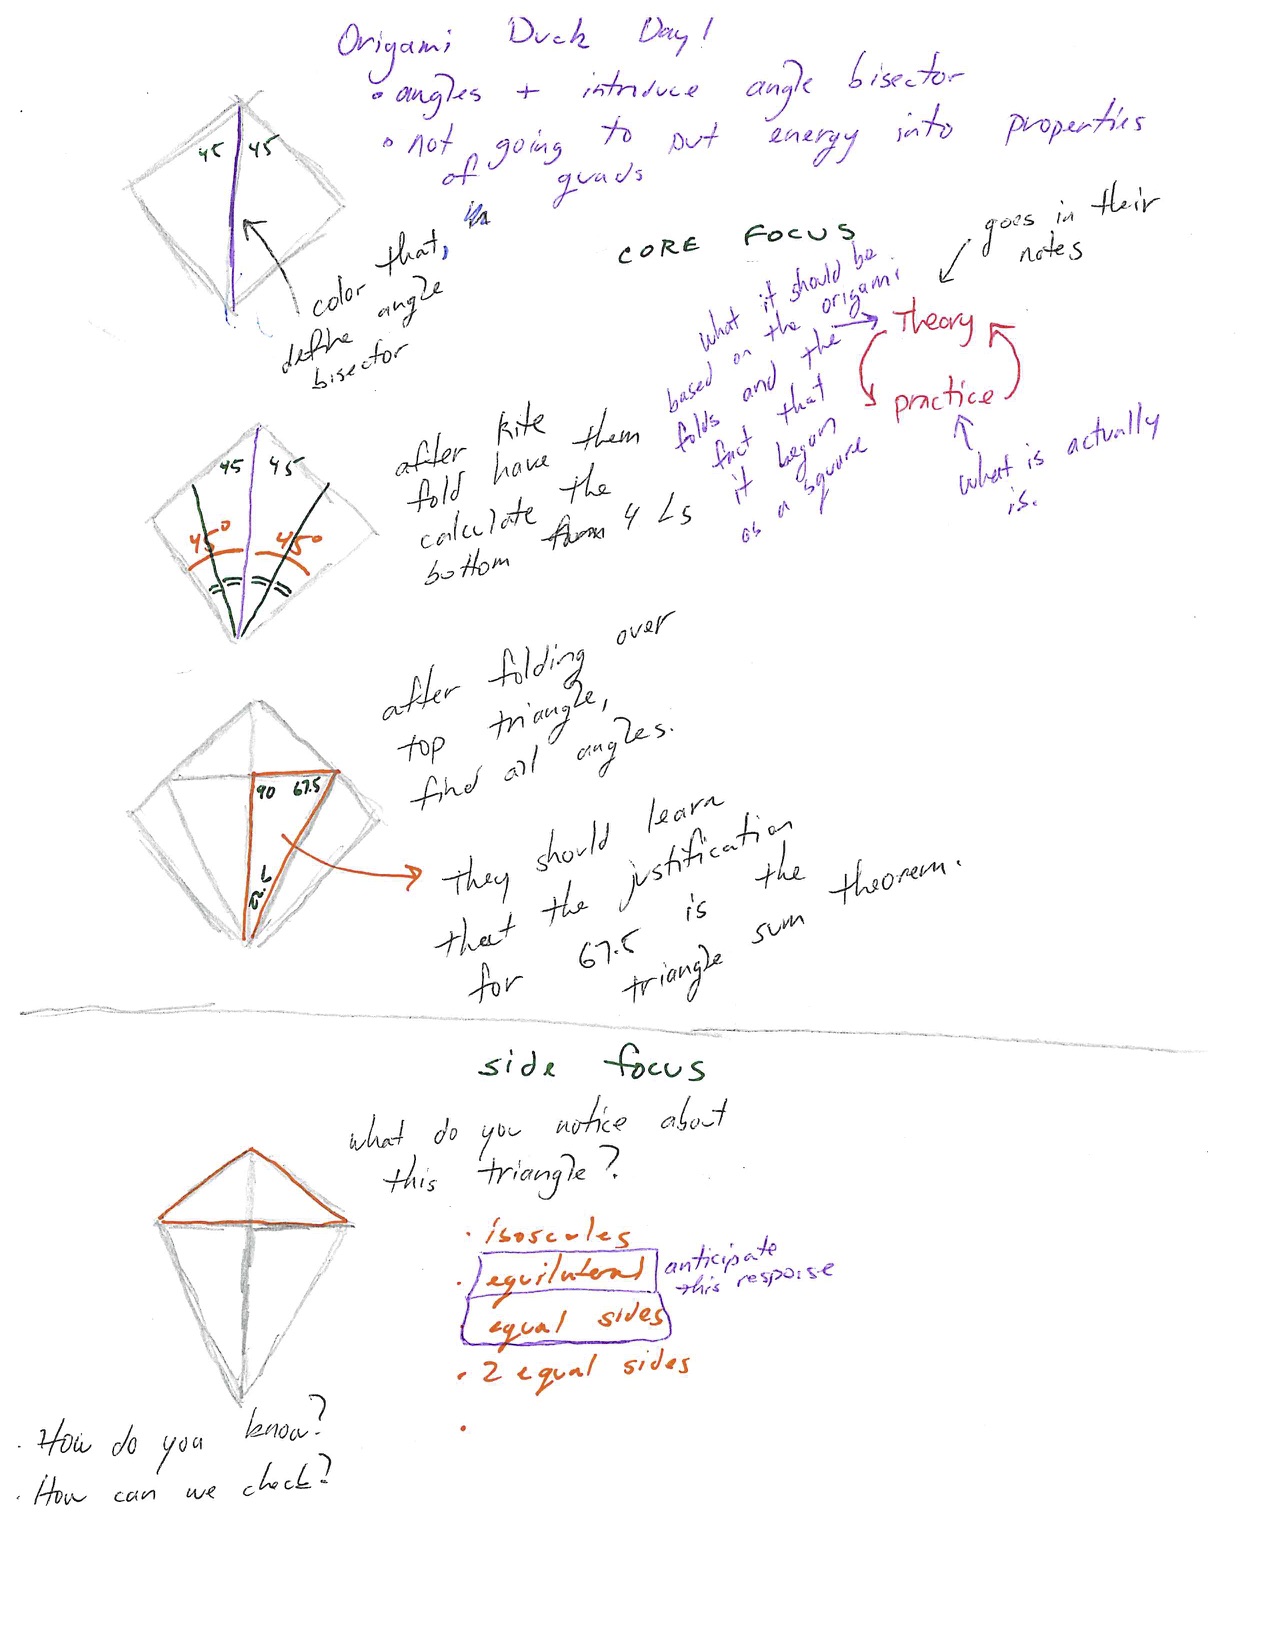 Origami Duck Day!
• angles + introduce angle bisector
• not going to put energy into properties
of quads
45 45
color that,
define angle
bisector
CORE FOCUS
goes in their
notes
what it should be
based on the origami
folds and the
fact that
it began
as a square
Theory
practice
what is actually
is.
45 45
45° 45°
after kite
fold have them
calculate the
bottom 4 ∠s
after folding over
top triangle,
find all angles.
90 67.5
they should learn
that the justification
for 67.5 is the
triangle sum theorem.
side focus
what do you notice about
this triangle?
• isoscules
• equilateral
equal sides
anticipate
this response
• 2 equal sides
•
• How do you know?
• How can we check?